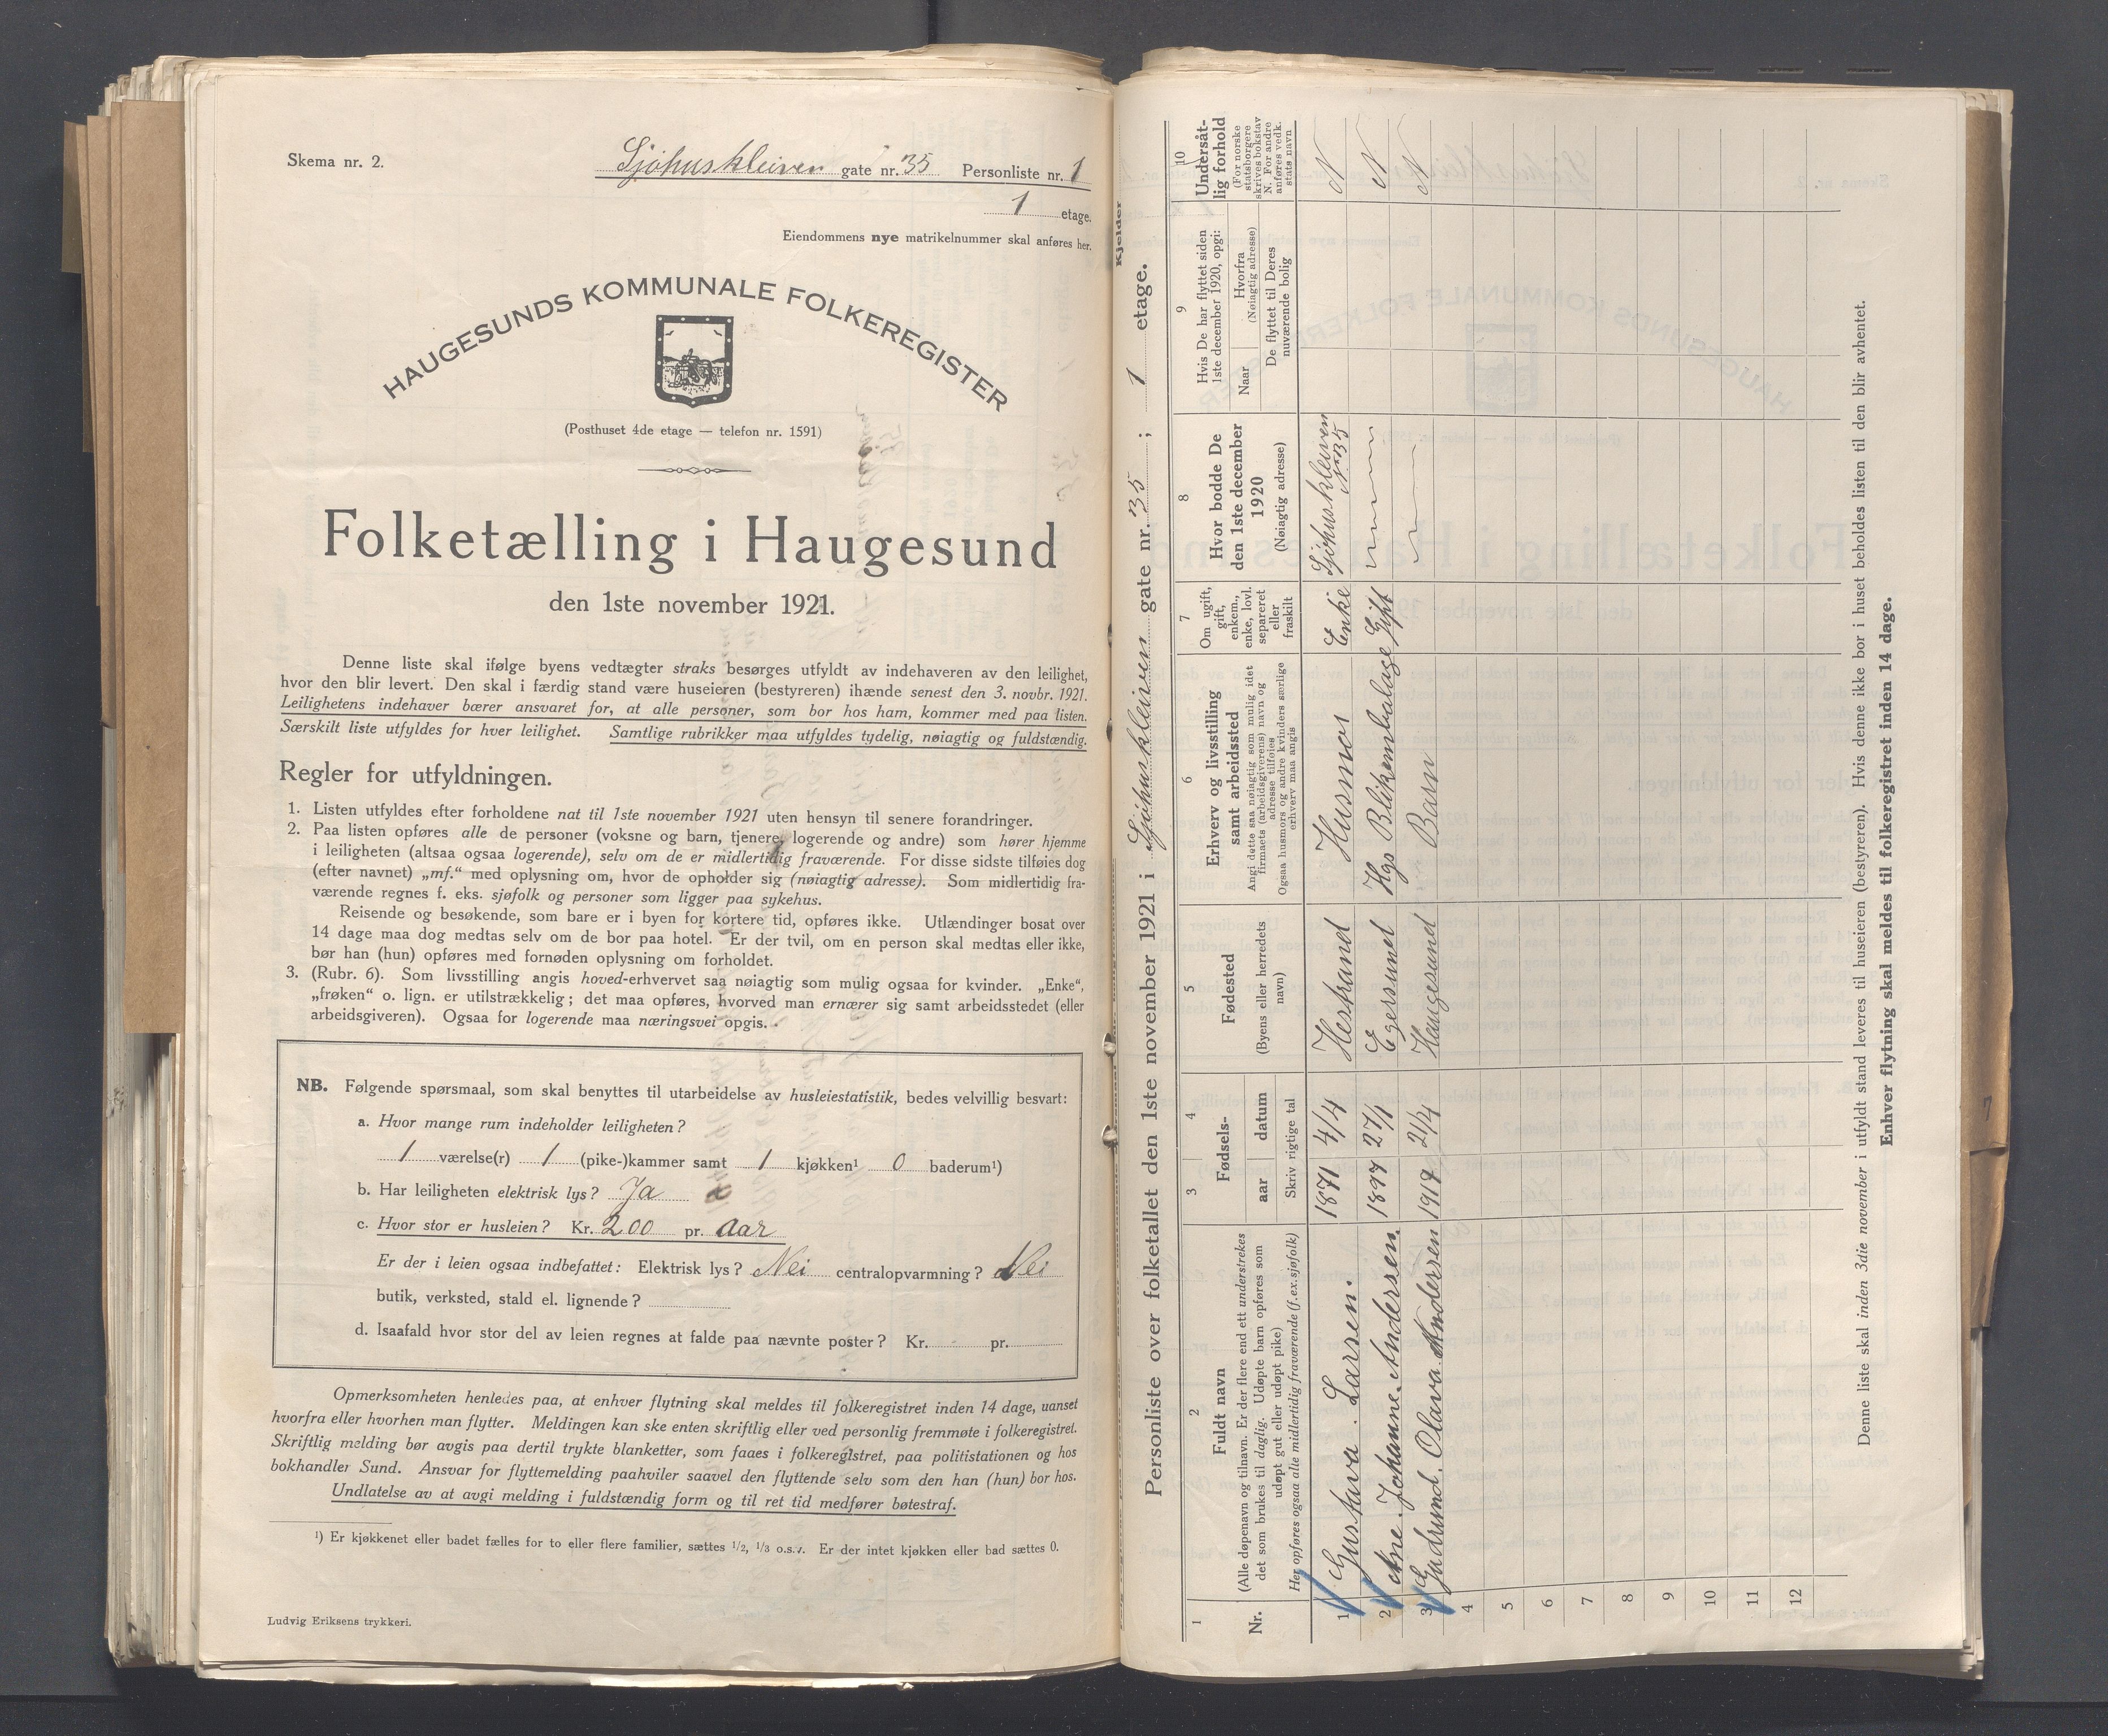 Skema nr. 2.
Sjøhuskleiven gate nr. 35 Personliste nr. 1
1 etage.
Eiendommens nye matrikelnummer skal anføres her.
HAUGESUNDS KOMMUNALE FOLKEREGISTER
(Posthuset 4de etage — telefon nr. 1591)
Folketælling i Haugesund
den 1ste november 1921.
Denne liste skal ifølge byens vedtægter straks besørges utfyldt av indehaveren av den leilighet,
hvor den blir levert. Den skal i færdig stand være huseieren (bestyreren) ihænde senest den 3. novbr. 1921.
Leilighetens indehaver bærer ansvaret for, at alle personer, som bor hos ham, kommer med paa listen.
Særskilt liste utfyldes for hver leilighet. Samtlige rubrikker maa utfyldes tydelig, nøiagtig og fuldstændig.
Regler for utfyldningen.
1. Listen utfyldes efter forholdene nat til 1ste november 1921 uten hensyn til senere forandringer.
2. Paa listen opføres alle de personer (voksne og barn, tjenere, logerende og andre) som hører hjemme
i leiligheten (altsaa ogsaa logerende), selv om de er midlertidig fraværende. For disse sidste tilføies dog
(efter navnet) „mf.“ med oplysning om, hvor de opholder sig (nøiagtig adresse). Som midlertidig fra-
værende regnes f. eks. sjøfolk og personer som ligger paa sykehus.
Reisende og besøkende, som bare er i byen for kortere tid, opføres ikke. Utlændinger bosat over
14 dage maa dog medtas selv om de bor paa hotel. Er der tvil, om en person skal medtas eller ikke,
bør han (hun) opføres med fornøden oplysning om forholdet.
3. (Rubr. 6). Som livsstilling angis hoved-erhvervet saa nøiagtig som mulig ogsaa for kvinder. „Enke“,
„frøken“ o. lign. er utilstrækkelig; det maa opføres, hvorved man ernærer sig samt arbeidsstedet (eller
arbeidsgiveren). Ogsaa for logerende maa næringsvei opgis.
NB. Følgende spørsmaal, som skal benyttes til utarbeidelse av husleiestatistik, bedes velvillig besvart:
a. Hvor mange rum indeholder leiligheten?
1 værelse(r) 1 (pike-)kammer samt 1 kjøkken¹ 0 baderum¹)
b. Har leiligheten elektrisk lys? Ja
c. Hvor stor er husleien? Kr. 200 pr. aar
Er der i leien ogsaa indbefattet: Elektrisk lys? Nei centralopvarmning? Nei
butik, verksted, stald el. lignende?
d. Isaafald hvor stor del av leien regnes at falde paa nævnte poster? Kr. pr.
Opmerksomheten henledes paa, at enhver flytning skal meldes til folkeregistret inden 14 dage, uanset
hvorfra eller hvorhen man flytter. Meldingen kan ske enten skriftlig eller ved personlig fremmøte i folkeregistret.
Skriftlig melding bør avgis paa dertil trykte blanketter, som faaes i folkeregistret, paa politistationen og hos
bokhandler Sund. Ansvar for flyttemelding paahviler saavel den flyttende selv som den han (hun) bor hos.
Undlatelse av at avgi melding i fuldstændig form og til ret tid medfører bøtestraf.
¹) Er kjøkkenet eller badet fælles for to eller flere familier, sættes 1/2, 1/3 o.s.v. Er der intet kjøkken eller bad sættes 0.
Ludvig Eriksens trykkeri.
Kjelder
Personliste over folketallet den 1ste november 1921 i Sjøhuskleiven gate nr. 35 ; 1 etage.
1 2 3 4 5 6 7 8 9 10
Nr.
Fuldt navn
(Alle døpenavn og tilnavn. Er der flere end ett understrekes
det som brukes til daglig. Udøpte barn opføres som
udøpt gut eller udøpt pike)
Her opføres ogsaa alle midlertidig fraværende (f.ex.sjøfolk)
Fødsels-
aar datum
Skriv rigtige tal
Fødested
(Byens eller herredets
navn)
Erhverv og livsstilling
samt arbeidssted
Angi dette saa nøiagtig som mulig idet
firmaets (arbeidsgiverens) navn og
adresse tilføies
Ogsaa husmors og andre kvinders særlige
erhverv maa angis
Om ugift,
gift,
enkem.,
enke, lovl.
separeret
eller
fraskilt
Hvor bodde De
den 1ste december
1920
(Nøiagtig adresse)
Hvis De har flyttet siden
1ste december 1920, opgi:
Naar
Hvorfra
(Nøiagtig adresse)
De flyttet til Deres
nuværende bolig
Undersåt-
lig forhold
(For norske
statsborgere
skrives bokstav
N. For andre
anføres vedk.
stats navn
1 Gustava. Larsen. 1871 4/4 Hestrand Husmor Enke Sjøhuskleiven Nr 35 N
2 Ane. Johanne. Andersen. 1897 27/1 Egersund Hgs Blikemballage Gift N
3 Gudrund. Olava. Andersen 1917 21/4 Haugesund Barn N
4
5
6
7
8
9
10
11
12
Denne liste skal inden 3die november i utfyldt stand leveres til huseieren (bestyreren). Hvis denne ikke bor i huset beholdes listen til den blir avhentet.
Enhver flytning skal meldes til folkeregistret inden 14 dage.